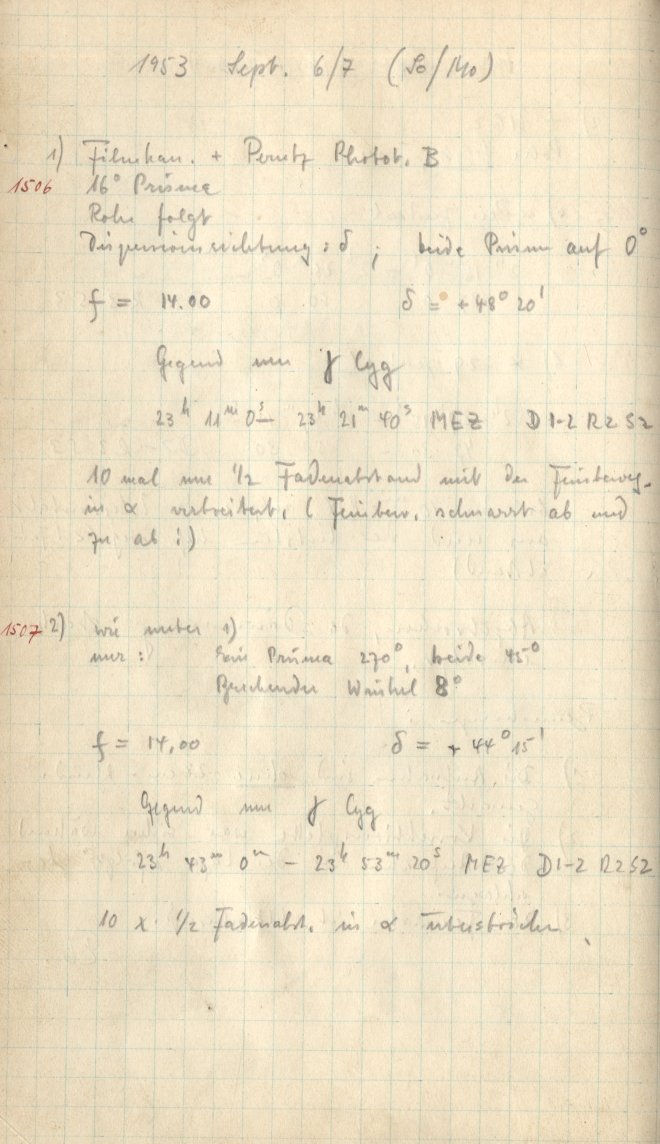 1953 Sept. 6/7 (So/Mo)
1) Filmkan. + Perutz Photot. B
1506 16° Prisma
Rohr folgt
Dispersionsrichtung: δ ; beide Prismen auf 0°
f = 14.00 δ = + 48° 20'
Gegend um γ Cyg
23h 11m 0s – 23h 21m 40s MEZ D1-2 R2 S2
10 mal um 1/2 Fadenabstand mit der Feinbeweg.
in α verbreitert. ( Feinbew. schnarrt ab und
zu ab !)
1507 2) wie unter 1)
nur: Ein Prisma 270°, beide 45°
Brechender Winkel 8°
f = 14,00 δ = + 44° 15'
Gegend um γ Cyg
23h 43m 0m – 23h 53m 20s MEZ D1-2 R2 S2
10 x 1/2 Fadenabst. in α